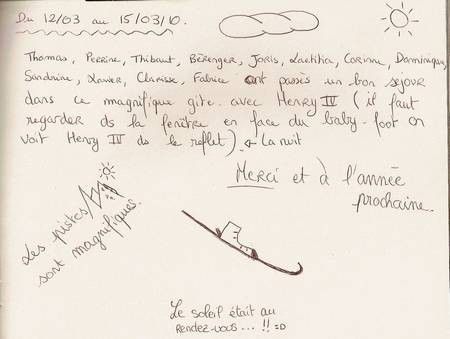 Du 12/03 au 15/03/10.
Thomas, Perrine, Thibaut, Bérenger, Joris, Laetitia, Corinne, Domminique,
Sandrine, Xavier, Clarisse, Fabrice ont passés un bon séjour
dans ce magnifique gite. avec Henry IV (il faut
regarder ds la fenêtre en face du baby-foot on
voit Henry IV ds le reflet) ← La nuit
Merci et à l'année
prochaine.
Les pistes
sont magnifiques.
Le soleil était au
RENDEZ-VOUS...!! =D